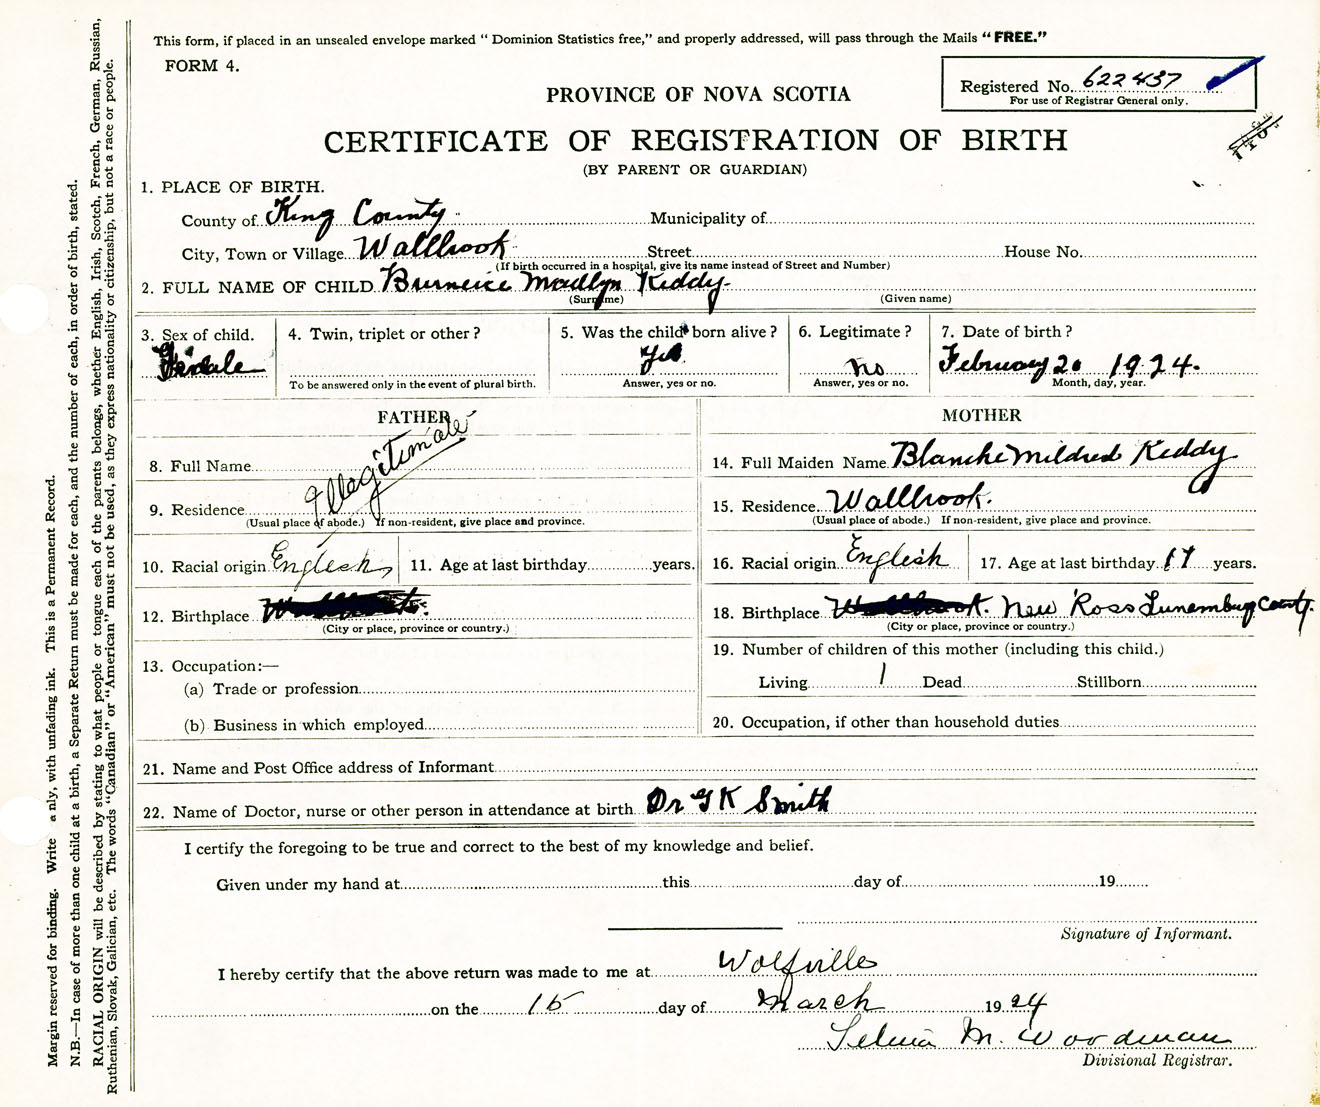 This form, if placed in an unsealed envelope marked “ Dominion Statistics free,” and properly addressed, will pass through the Mails “ FREE.”
FORM 4.
Registered No. 622437
For use of Registrar General only.
PROVINCE OF NOVA SCOTIA
CERTIFICATE OF REGISTRATION OF BIRTH
(BY PARENT OR GUARDIAN)
1. PLACE OF BIRTH.
County of King County Municipality of
City, Town or Village Wallbrook Street House No.
(If birth occurred in a hospital, give its name instead of Street and Number)
2. FULL NAME OF CHILD Burneice Madlyn Keddy
(Surname) (Given name)
3. Sex of child. 4. Twin, triplet or other ? 5. Was the child born alive ? 6. Legitimate ? 7. Date of birth ?
Female Yes no February 20 1924.
To be answered only in the event of plural birth. Answer, yes or no. Answer, yes or no. Month, day, year.
FATHER
Illegitimate
8. Full Name
9. Residence
(Usual place of abode.) If non-resident, give place and province.
10. Racial origin English 11. Age at last birthday years.
12. Birthplace
(City or place, province or country.)
13. Occupation:—
(a) Trade or profession
(b) Business in which employed
MOTHER
14. Full Maiden Name Blanche Mildred Keddy
15. Residence Wallbrook.
(Usual place of abode.) If non-resident, give place and province.
16. Racial origin English 17. Age at last birthday 17 years.
18. Birthplace Wallbrook. New Ross Lunemburg County.
(City or place, province or country.)
19. Number of children of this mother (including this child.)
Living 1 Dead Stillborn
20. Occupation, if other than household duties
21. Name and Post Office address of Informant
22. Name of Doctor, nurse or other person in attendance at birth Dr G K Smith
I certify the foregoing to be true and correct to the best of my knowledge and belief.
Given under my hand at this day of 19
Signature of Informant.
I hereby certify that the above return was made to me at Wolfville
on the 15 day of March 1924
Selina M. Woodman
Divisional Registrar.
Margin reserved for binding. Write nly, with unfading ink. This is a Permanent Record.
N.B.—In case of more than one child at a birth, a Separate Return must be made for each, and the number of each, in order of birth, stated.
RACIAL ORIGIN will be described by stating to what people or tongue each of the parents belongs, whether English, Irish, Scotch, French, German, Russian,
Ruthenian, Slovak, Galician, etc. The words “Canadian” or “American” must not be used, as they express nationality or citizenship, but not a race or people.